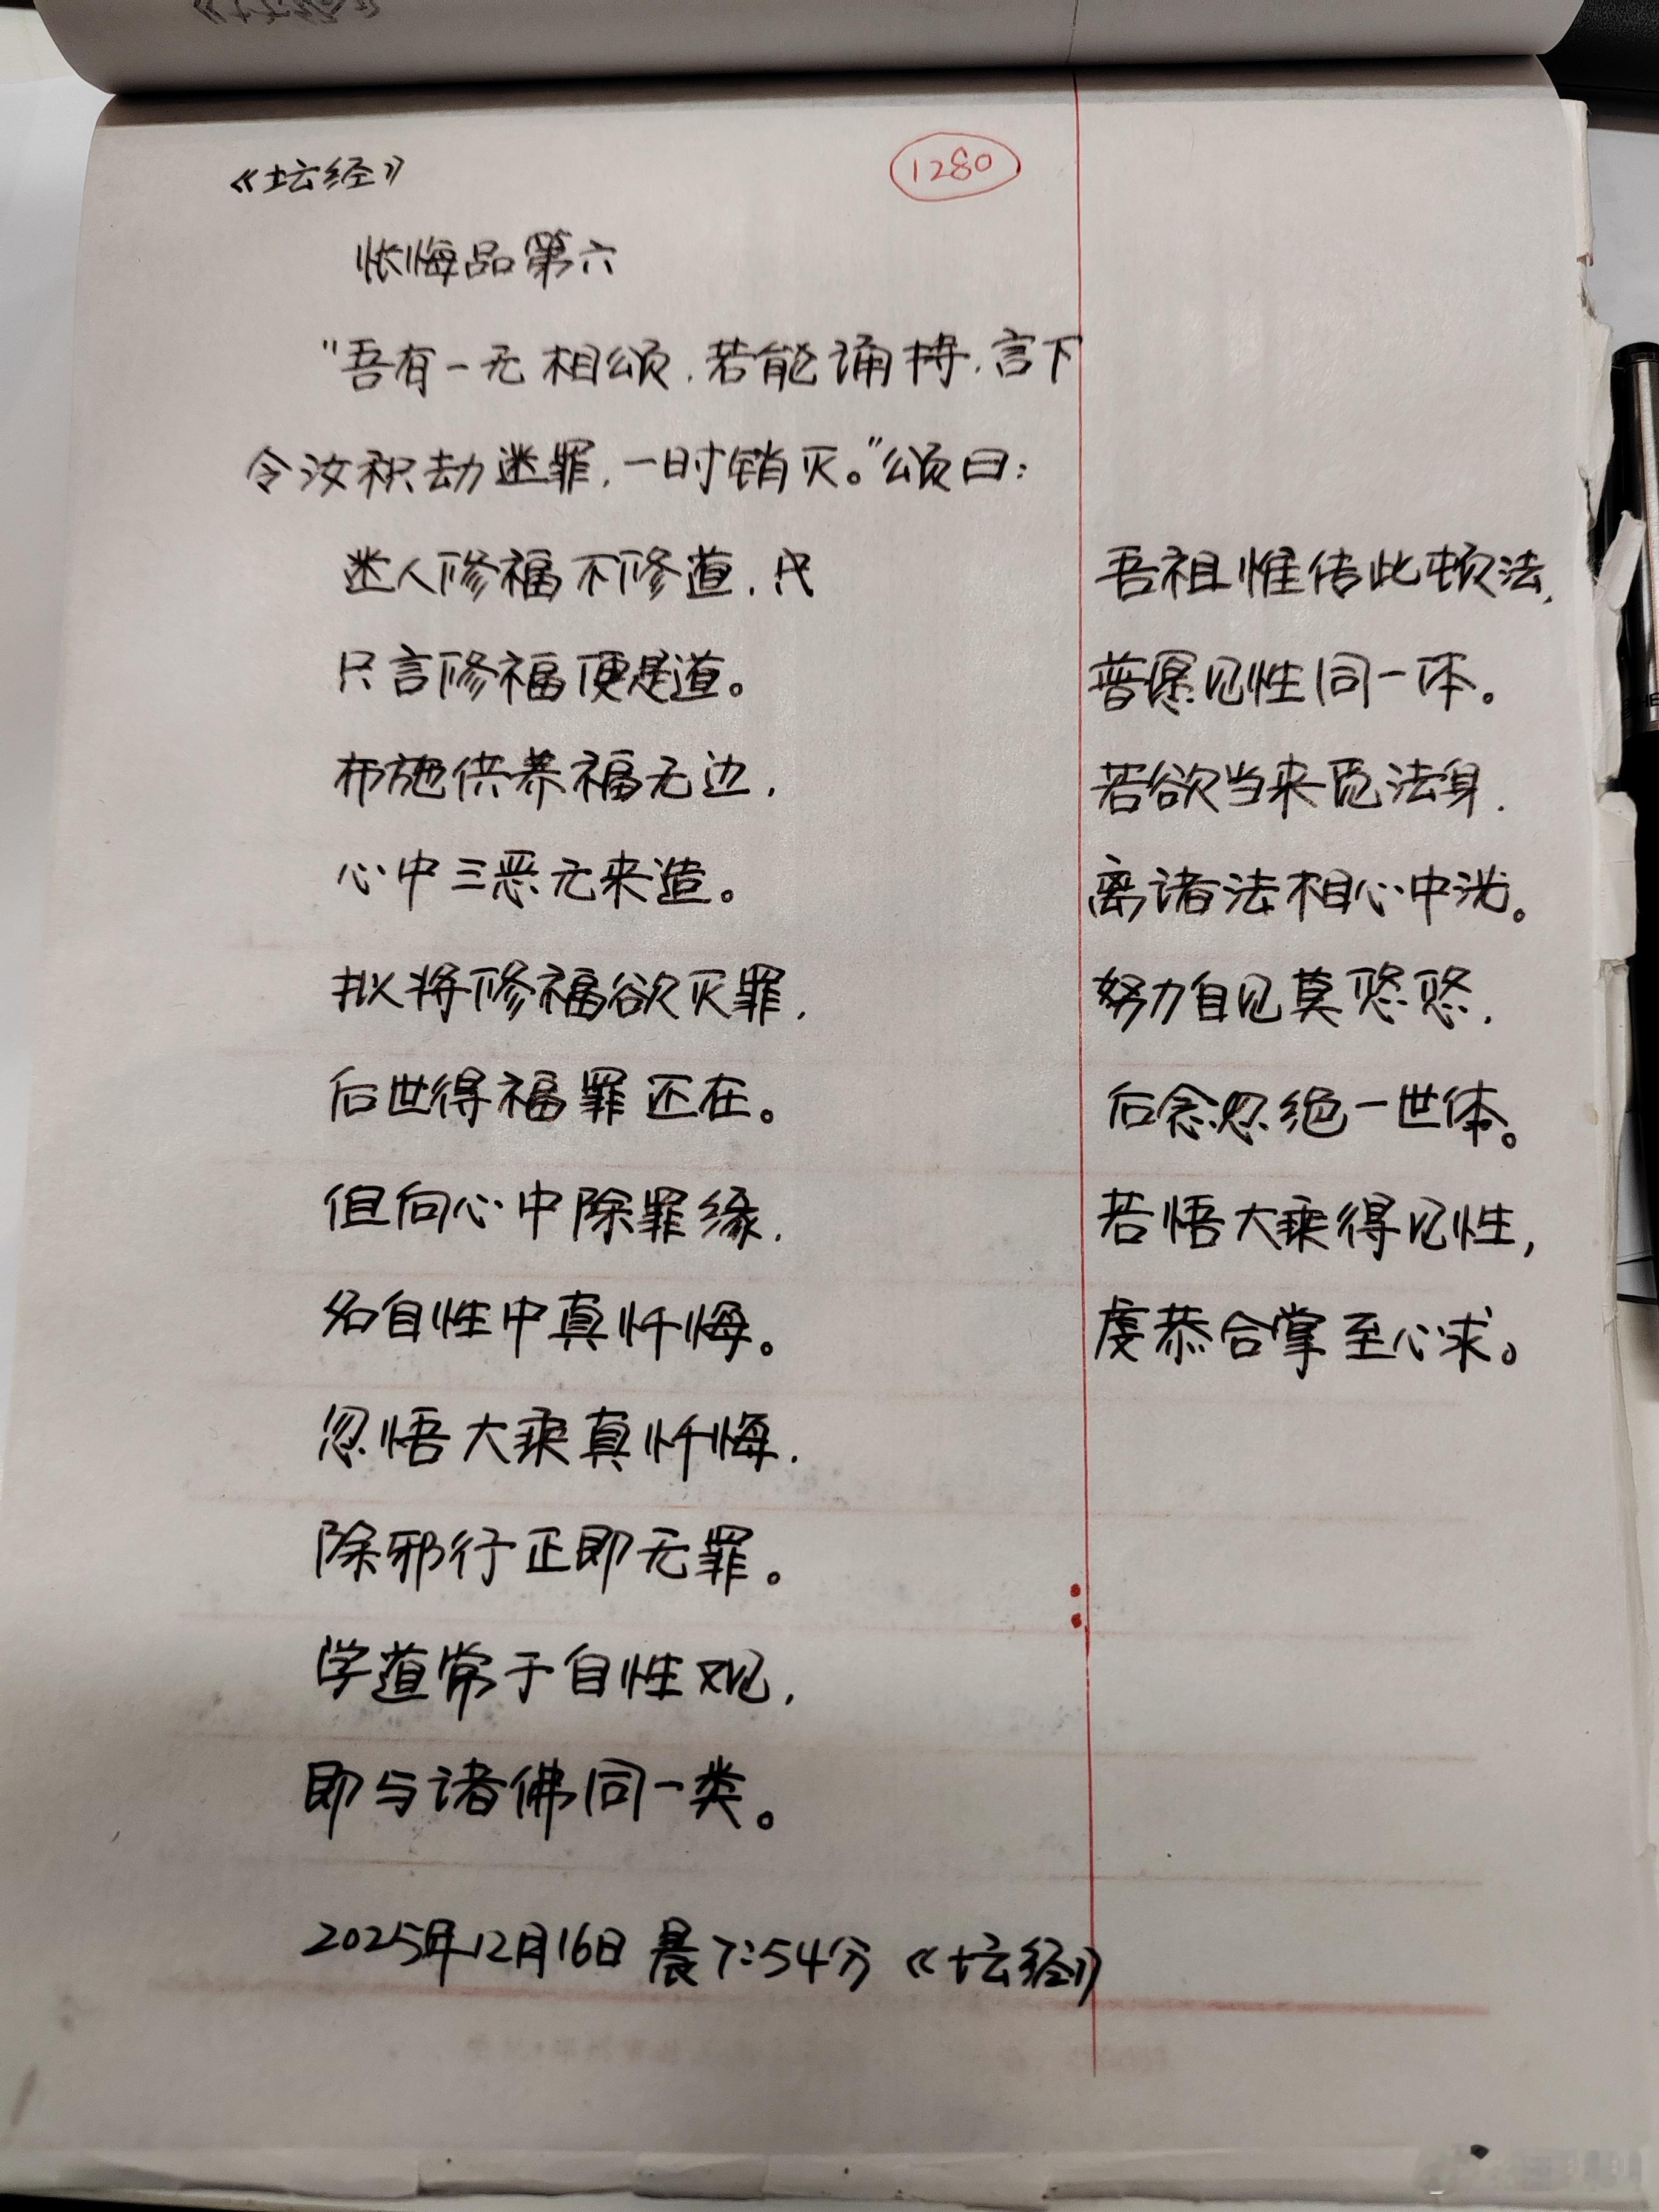 《坛经》
1280
怅悔品第六
"吾有一无相颂,若能诵持,言下
令汝积劫迷罪,一时销灭。"颂曰:
迷人修福不修道,
只言修福便是道。
布施供养福无边,
心中三恶元来造。
拟将修福欲灭罪,
后世得福罪还在。
但向心中除罪缘,
名自性中真忏悔。
忽悟大乘真忏悔,
除邪行正即无罪。
学道常于自性观,
即与诸佛同一类。
吾祖惟传此顿法,
普愿见性同一体。
若欲当来觅法身,
离诸法相心中洗。
努力自见莫悠悠,
后念忽绝一世体。
若悟大乘得见性,
虔恭合掌至心求。
2025年12月16日晨7:54分《坛经》